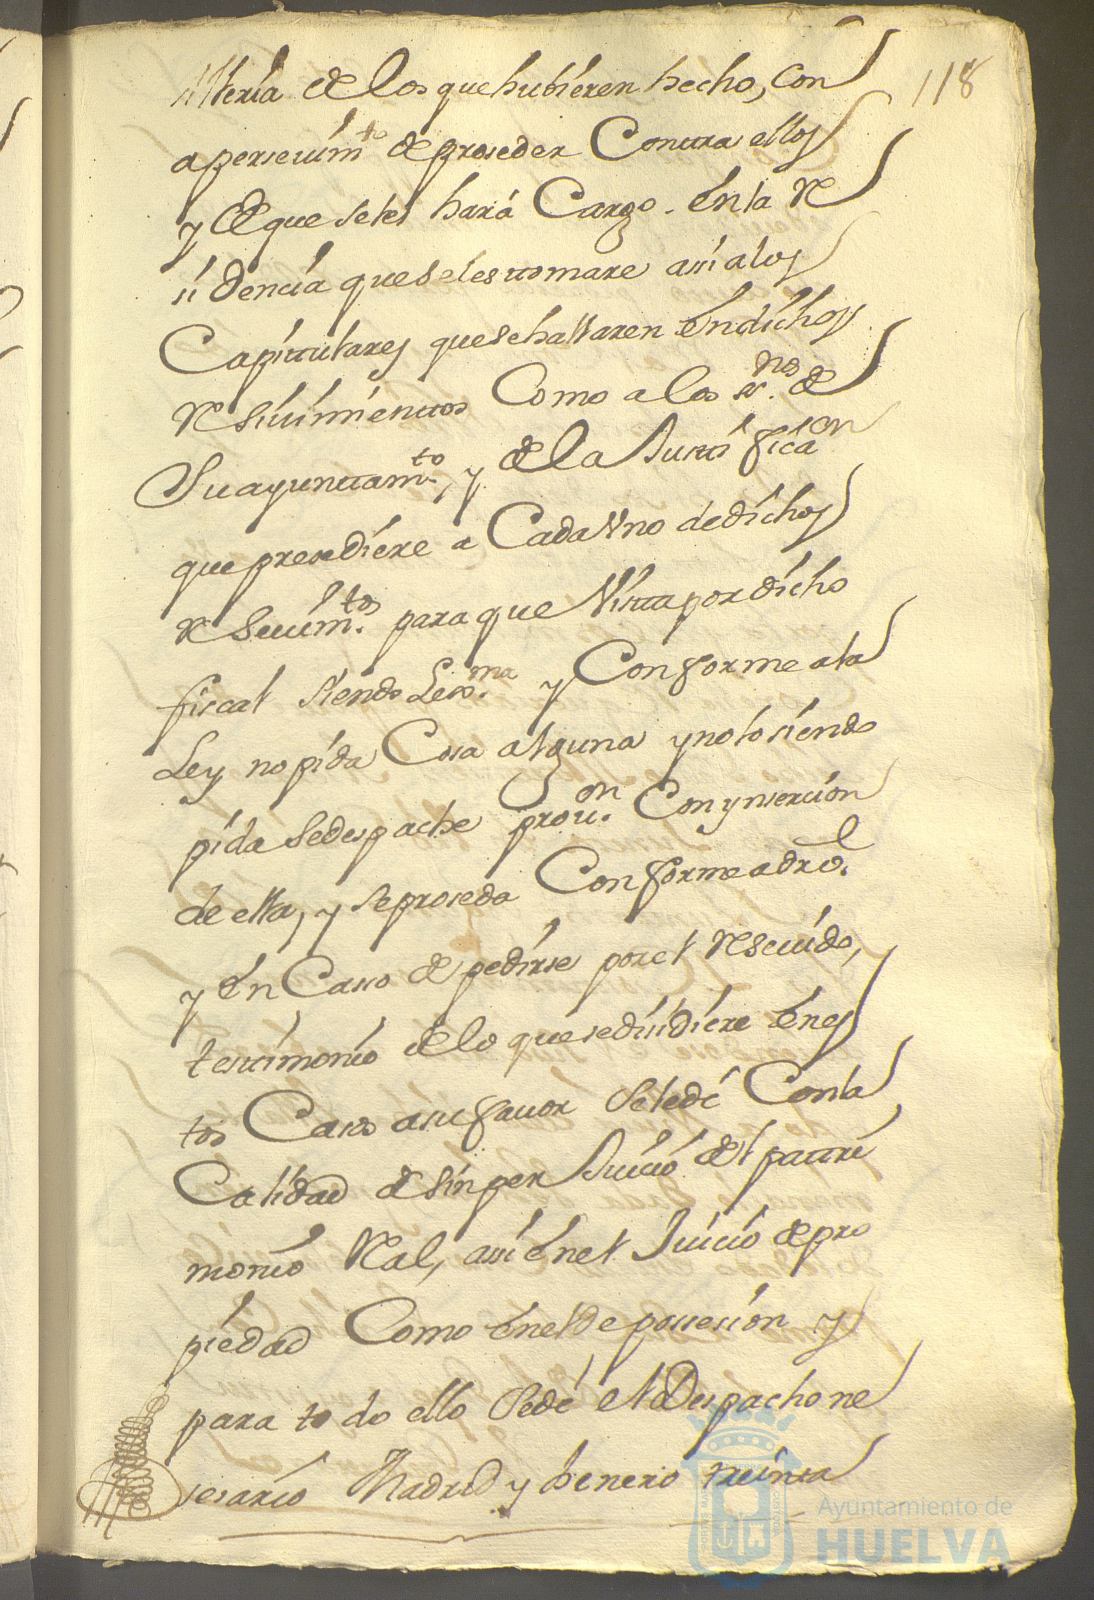 118
Alteria de los que hubieren hecho, con
apersevim.to de proseder Contra ellos
y de que se les hará Cargo. En la Re
sidencia que se les tomare assi a los
Capitulares que se hallaren En dichos
Resiuimientos Como a los ss.nos de
Su ayuntam.to, y de la Justificaon
que presediere a Cada Vno de dichos
Resevim.tos para que Vista por dicho
fiscal siendo Lex.ma y Conforme a la
Ley no pida Cosa alguna y no lo siendo
pida se despache prou.on Con ynsercion
de ella, y se proseda Conforme a dro.
y En Casso de pedirse por el Resevido,
testimonio de lo que se disidiere En es
tos Casos a su favor se le dé Con la
Calidad de sin per Juicio del patri
monio Real, assi En el Juicio de pro
piedad Como En el de possesion y
para todo ello se dé el Despacho ne
sesario Madrid y henero treinta
Ayuntamiento de
HUELVA